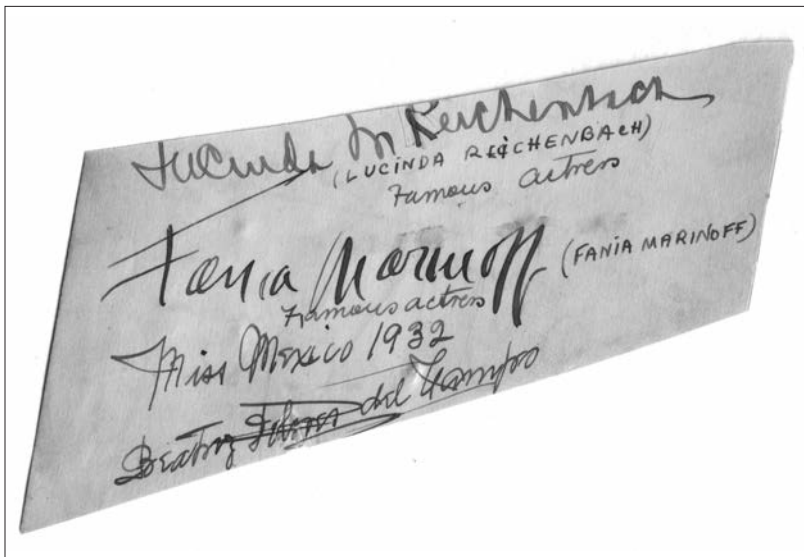 Lucinda M Reichenbach
(LUCINDA REICHENBACH)
Famous actress
Fania Marinoff (FANIA MARINOFF)
Famous actress
Miss Mexico 1932
Beatriz del